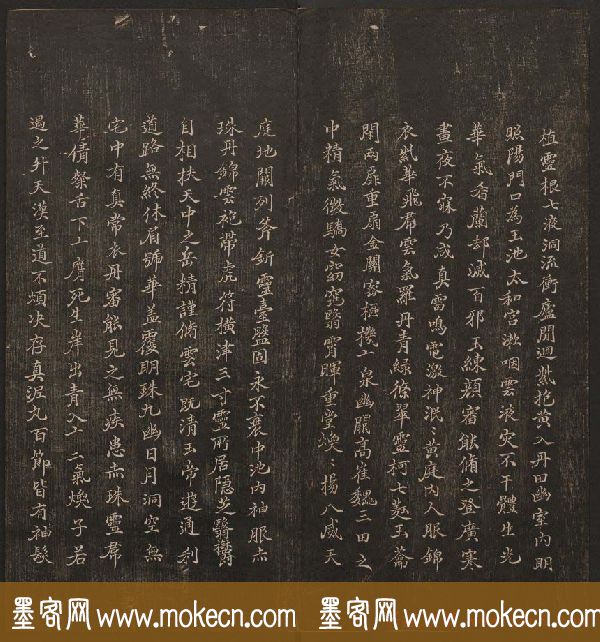 植靈根七液洞流衝廬間迴紫抱黃入丹田幽室內明
照陽門口為玉池太和宮漱咽雲液灾不干體生光
華氣香蘭却滅百邪玉練顏審能脩之登廣寒
晝夜不寐乃成真雷鳴電激神泯泯黃庭內人服錦
衣紫華飛羣雲氣羅丹青綠條翠靈柯七蕤玉籥
閉兩扉重扇金關密樞機玄泉幽闕高崔巍三田之
中精氣微嬌女窈窕翳霄暉重堂煥〻揚八威天
庭地關列斧斤靈臺盤固永不衰中池內神服赤
珠丹錦雲袍帶虎符橫津三寸靈所居隱芝翳鬱
自相扶天中之岳精謹脩雲宅既清玉帝遊通利
道路無終休眉號華蓋覆明珠九幽日月洞空無
宅中有真常衣丹審能見之無疾患赤珠靈羣
華倩粲舌下玄膺死生岸出青入玄二氣煥子若
遇之升天漢至道不煩決存真泥丸百節皆有神髮
墨客网 www.mokecn.com
墨客网 www.mokecn.com